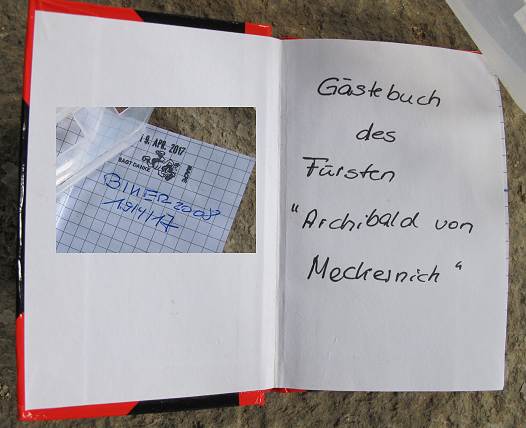 18. APR. 2017
SAGT DANKE
BIKER2008
19/4/17
Gästebuch
des
Fürsten
"Archibald von
Mechernich"